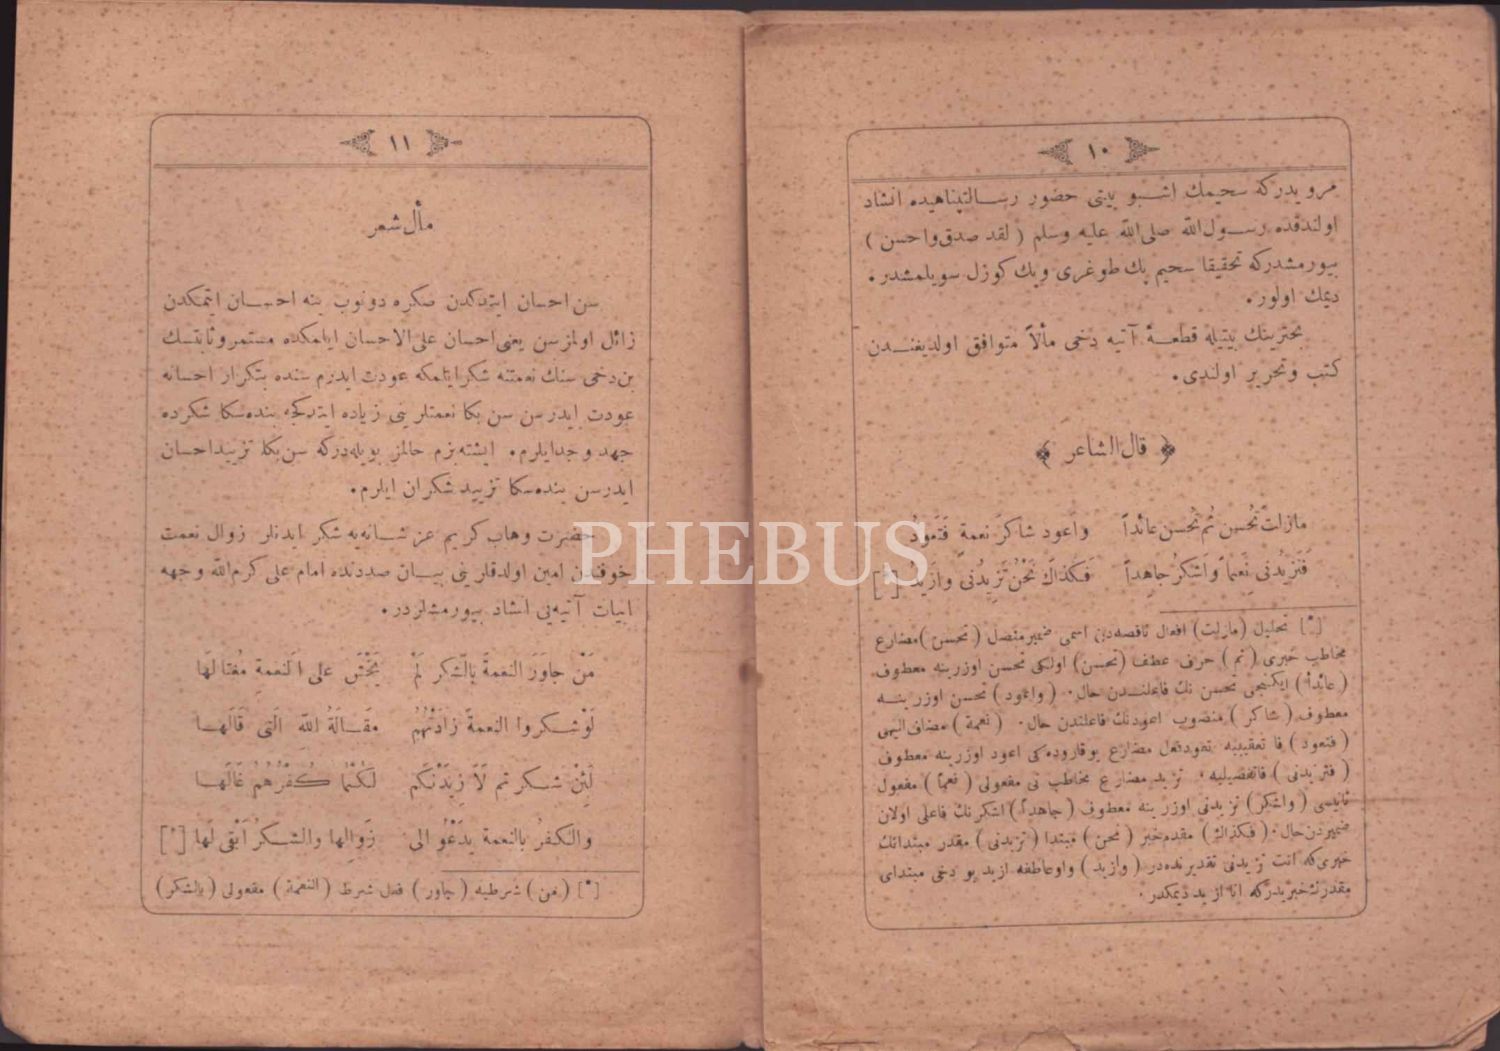 ١٠
مرويدركه سحيمك اشبو بيتى حضور رسالتپناهيده انشاد
اولندقده رسول الله صلى الله عليه وسلم ( لقد صدق واحسن )
بيورمشدركه تحقيقا سحيم پك طوغرى وپك كوزل سويلمشدر .
ديمك اولور .
بحترينك بيتيله قطعهٔ آتيه دخى مآلاً متوافق اولديغندن
كتب وتحرير اولندى .
﴿ قال الشاعر ﴾
مازلتَ تُحسن ثُم تُحسن عائداً واَعود شاكرَ نعمةٍ فَتَعودُ
فَتَزيدُنى نِعَماً واَشكرُ جاهداً فَكذاكَ نَحْنُ تَزيدُنى وازيدُ [*]
[*] تحليل (مازلت) افعال ناقصه‌دن اسمى ضمير متصل ( تحسن ) مضارع
مخاطب خبرى ( ثم ) حرف عطف (تحسن) اولكى تحسن اوزرينه معطوف
(عائداً) ايكنجى تحسن نك فاعلندن حال . ( واعود ) تحسن اوزرينه
معطوف ( شاكر ) منصوب اعودنك فاعلندن حال . ( نعمة ) مضاف اليهى
( فتعود ) فا تعقيبيه تعود فعل مضارع يوقاروده‌كى اعود اوزرينه معطوف
( فتزيدنى ) فا تفصيليه . تزيد مضارع مخاطب نى مفعولى ( نعماً ) مفعول
ثانيسى ( واشكر) تزيدنى اوزرينه معطوف ( جاهداً ) اشكرنك فاعلى اولان
ضميردن حال . ( فكذاك ) مقدم خبر ( نحن ) مبتدا ( تزيدنى ) مقدر مبتدانك
خبرى كه انت تزيدنى تقديرنده‌در ( وازيد ) واو عاطفه ازيد بو دخى مبتداى
مقدرنك خبريدركه انا ازيد ديمكدر .
١١
مآل شعر
سن احسان ايتدكدن صكره دونوب ينه احسان ايتمكدن
زائل اولمزسن يعنى احسان على الاحسان ايلمكده مستمر وثابتسك
بن دخى سنك نعمتنه شكر ايلمكه عودت ايدرم سنده بتكرار احسانه
عودت ايدرسن سن بكا نعمتلرينى زياده ايتدكجه بنده سكا شكرده
جهد وجد ايلرم . ايشته بزم حالمز بويله‌دركه سن بكا تزييد احسان
ايدرسن بنده سكا تزييد شكران ايلرم .
حضرت وهاب كريم عز شانه‌يه شكر ايدنلر زوال نعمت
خوفندن امين اولدقلرينى بيان صددنده امام على كرم الله وجهه
ابيات آتيه‌يى انشاد بيورمشلردر .
مَنْ جاوَرَ النعمةَ بالشكر لَمْ يَخْشَ على النعمةِ مُغتالَها
لَوْ شكروا النعمةَ زادَتْهُمْ مقالَةُ الله التى قالَها
لَئِنْ شكرتم لَاَزِيدَنَّكم لكنما كُفْرُهُمْ غالَها
والكفرُ بالنعمة يدْعُو الى زَوالِها والشكرُ اَبْقى لَها [*]
[*] (من) شرطيه ( جاور) فعل شرط (النعمة) مفعولى (بالشكر)
PHEBUS